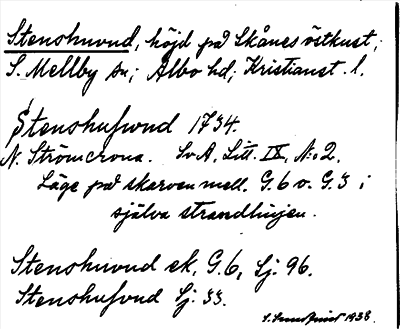 Stenshuvud, höjd på Skånes östkust,
S. Mellby sn; Albo hd; Kristianst. l.
Stenshufwud 1734.
N. Strömcrona. SvA, Litt. IX, N:o 2.
Läge på skarven mell. G.6 o. G.3 i
själva strandlinjen.
Stenshuvud ek. G.6, Lj. 96.
Stenshufvud Lj. 33.
1938.